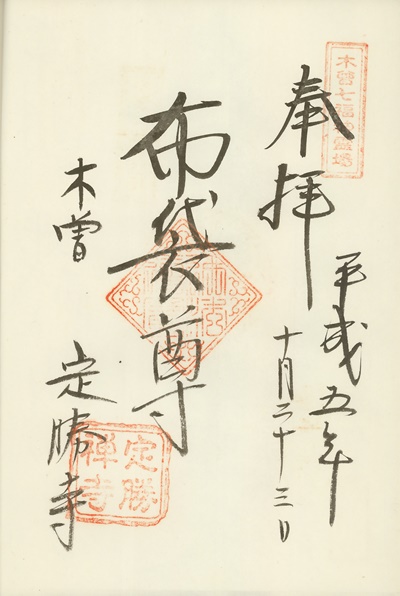 木曽七福神霊場
奉拝
平成五年
十月二十三日
布袋尊
木曽
定勝寺
定勝
禅寺